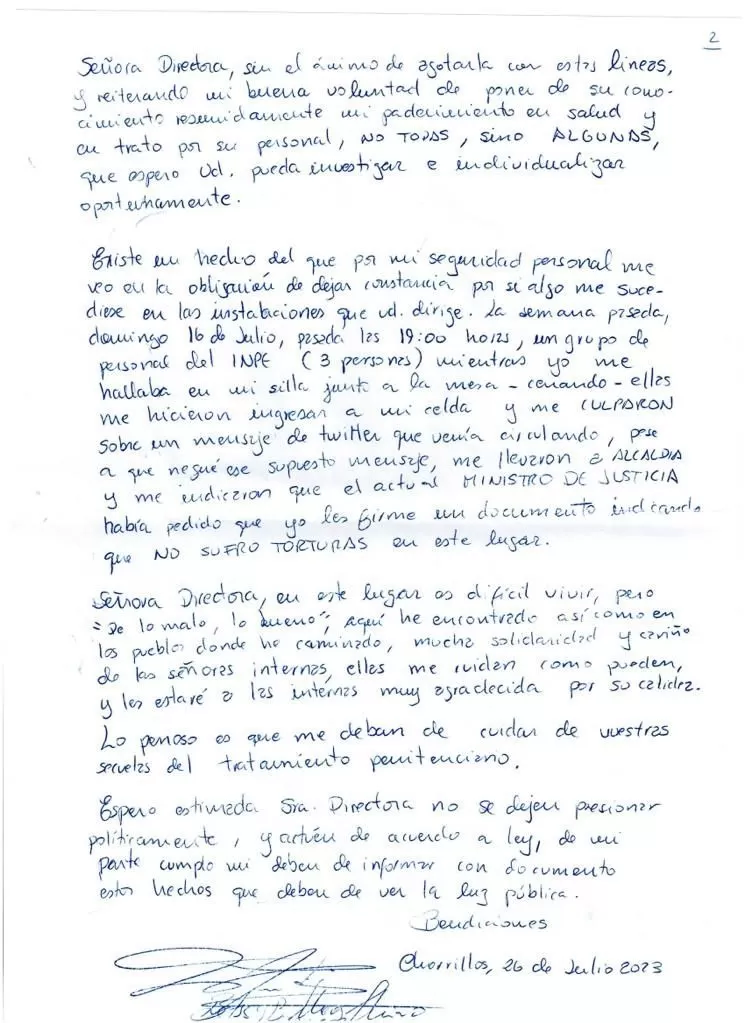 2
Señora Directora, sin el ánimo de agotarla con estas líneas,
y reiterando mi buena voluntad de poner de su cono-
cimiento resumidamente mi padecimiento en salud y
en trato por su personal, NO TODAS, sino ALGUNAS,
que espero Ud. pueda investigar e individualizar
oportunamente.
Existe un hecho del que por mi seguridad personal me
veo en la obligación de dejar constancia por si algo me suce-
diese en las instalaciones que ud. dirige. La semana pasada,
domingo 16 de Julio, pasada las 19:00 horas, un grupo de
personal del INPE (3 personas) mientras yo me
hallaba en mi silla junto a la mesa - cenando - ellas
me hicieron ingresar a mi celda y me CULPARON
sobre un mensaje de twitter que venía circulando, pese
a que negué ese supuesto mensaje, me llevaron a ALCALDIA
y me indicaron que el actual MINISTRO DE JUSTICIA
había pedido que yo les firme un documento indicando
que NO SUFRO TORTURAS en este lugar.
Señora Directora, en este lugar es difícil vivir, pero
"De lo malo, lo bueno", aquí he encontrado así como en
los pueblos donde he caminado, mucha solidaridad y cariño
de las señoras internas, ellas me cuidan como pueden,
y les estaré a las internas muy agradecida por su calidez.
Lo penoso es que me deban de cuidar de vuestras
secuelas del tratamiento penitenciario.
Espero estimada Sra. Directora no se dejen presionar
políticamente, y actúen de acuerdo a ley, de mi
parte cumplo mi deber de informar con documento
estos hechos que deben de ver la luz pública.
Bendiciones
Chorrillos, 26 de Julio 2023